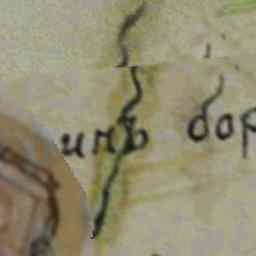 инъ бор